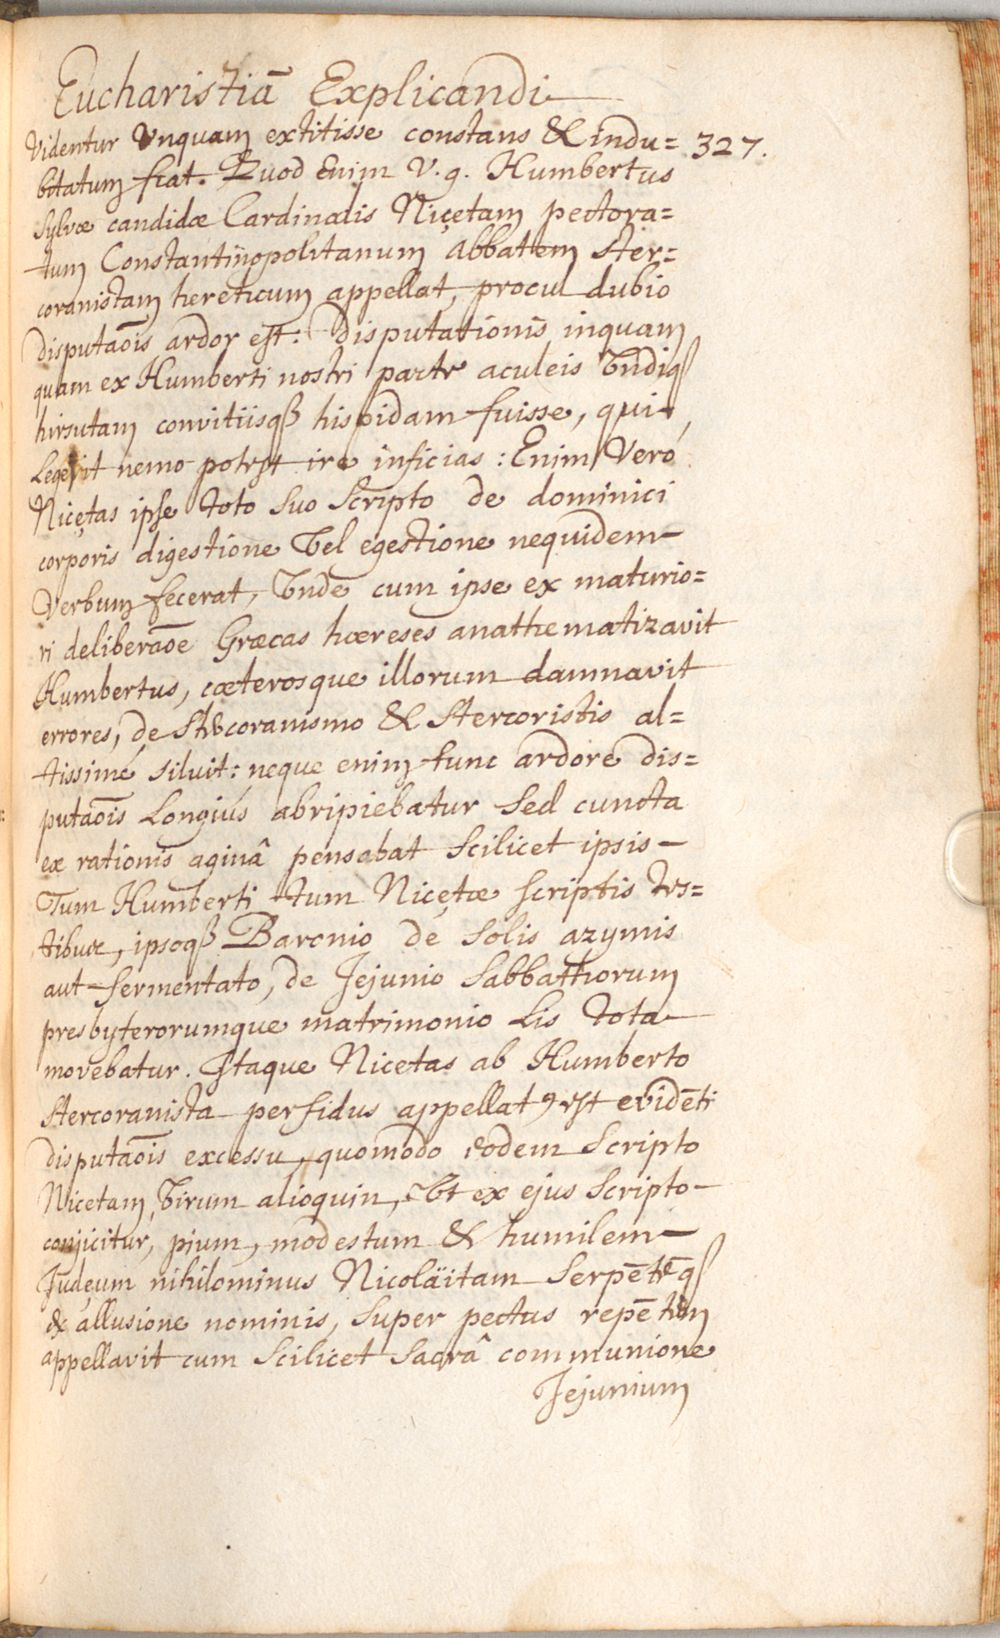 Eucharistiā Explicandi
Videntur Vnquam extitisse constans & indu= 327.
bitatum fiat. Quod Enim V. g. Humbertus
Sylvæ candidæ Cardinalis Nicętam pectora=
tum Constantinopolitanum Abbatem Ster=
coranistam hereticum appellat, procul dubio
disputaōis ardor est: disputationis inquam
quam ex Humberti nostri parte aculeis Vndiqꝫ
hirsutam convitiisqꝫ hispidam fuisse, qui
Legerit nemo potest ire inficias: Enim Veró
Nicętas ipse toto suo Scripto de dominici
corporis digestione Vel egestione nequidem
Verbum fecerat, Vnde cum ipse ex maturio=
ri deliberaōe Græcas hæreses anathematizavit
Humbertus, cæterosque illorum damnavit
errores, de Stercoranismo & Stercoristis al=
tissimé siluit: neque enim tunc ardore dis=
putaōis Longiús abripiebatur sed cuncta
ex rationis aginâ pensabat scilicet ipsis
Tum Humberti tum Nicętæ scriptis tes=
tibus, ipsoqꝫ Baronio de solis azymis
aut fermentato, de Jejunio Sabbathorum
presbyterorumque matrimonio Lis tota
movebatur. Itaque Nicetas ab Humberto
Stercoranista perfidus appellatꝰ est evidēti
disputaōis excessu, quomodo eodem Scripto
Nicetam, Virum alioquin, Vt ex ejus Scripto
conjicitur, pium, modestum & humilem
Judęum nihilominus Nicoläitam Serpētēqꝫ
ex allusione nominis, super pectus repētem
appellavit cum scilicet sacrâ communione
Jejunium